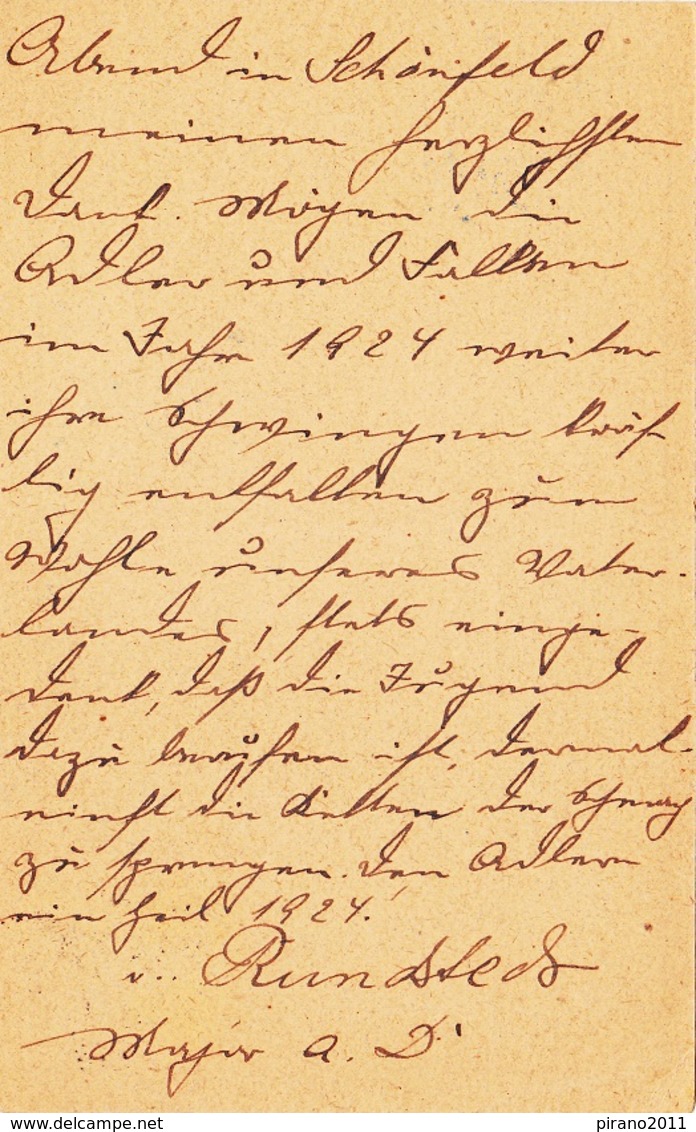 Abend in Schönfeld
meinen herzlichsten
Dank. Mögen die
Adler und Falken
im Jahr 1924 weiter
ihre Schwingen kräf-
tig entfalten zum
Wohle unseres Vater-
landes, stets einge-
denk, daß die Jugend
dazu berufen ist, dermal-
einst die Ketten der Schmach
zu sprengen. Den Adlern
ein Heil 1924.
v. Rundstedt
Major a. D.
www.delcampe.net
pirano2011